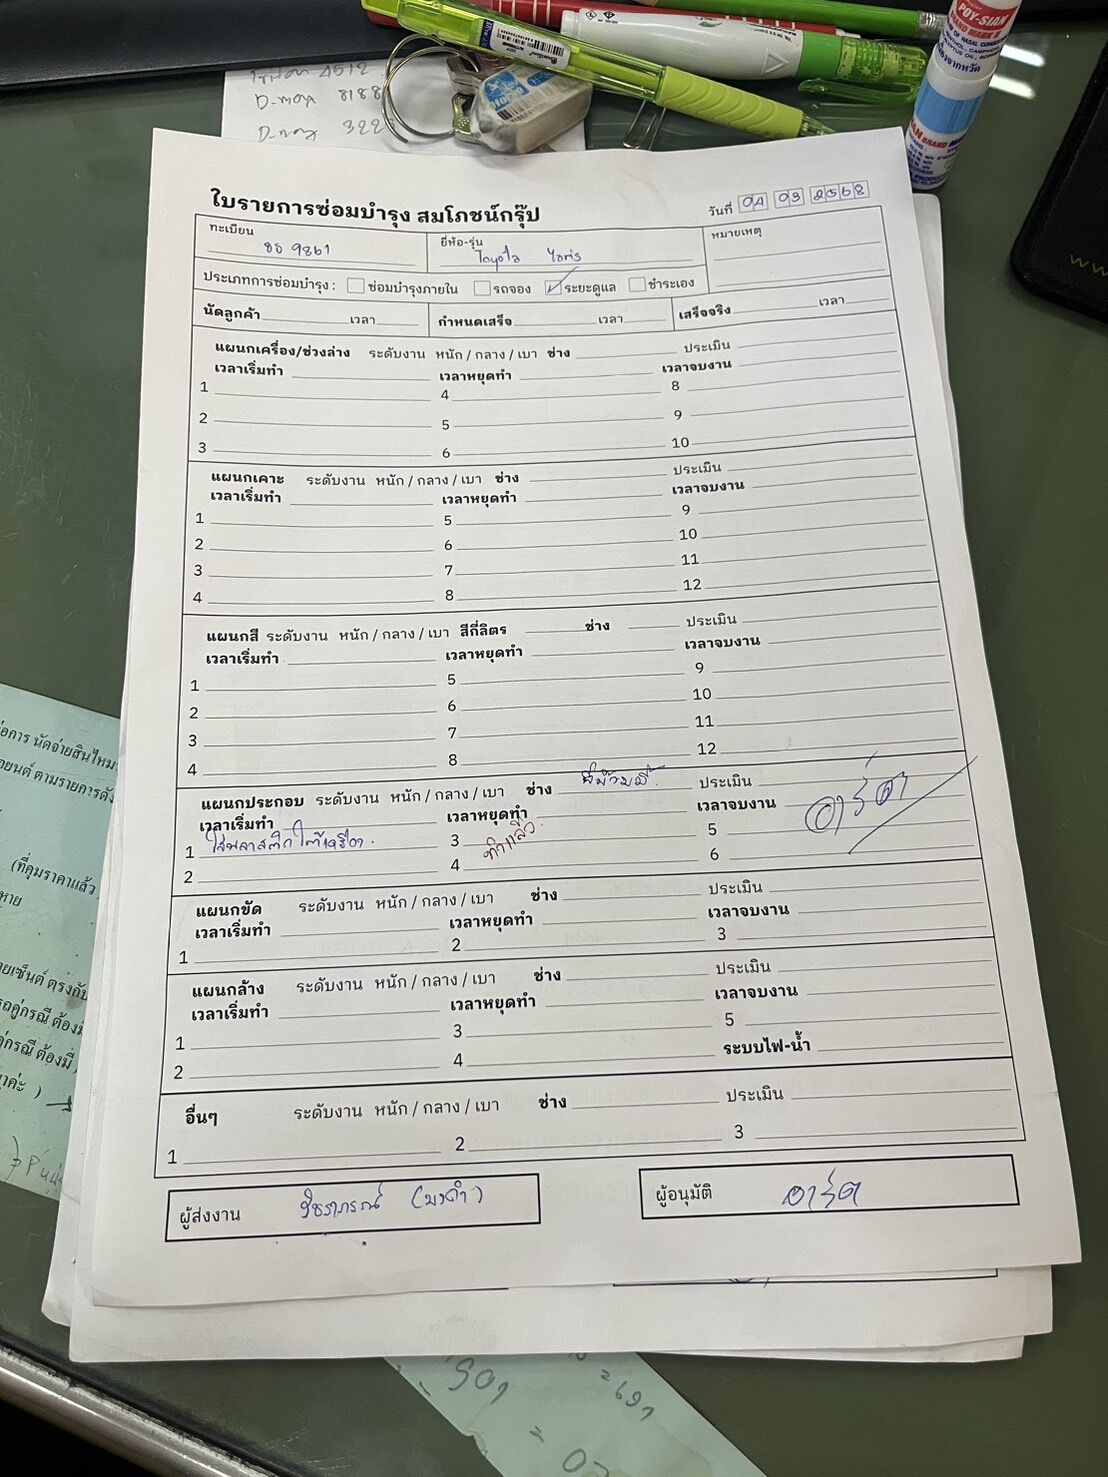 D-max 8188
D-max 322
POY-SIAN
MARK II
ใบรายการซ่อมบำรุง สมโภชน์กรุ๊ป
วันที่ 04 03 2568
ทะเบียน 9861
ยี่ห้อ-รุ่น Toyota Yaris
หมายเหตุ
ประเภทการซ่อมบำรุง : ซ่อมบำรุงภายใน รถจอง ระยะดูแล ชำระเอง
นัดลูกค้า เวลา กำหนดเสร็จ เวลา เสร็จจริง เวลา
แผนกเครื่อง/ช่วงล่าง ระดับงาน หนัก / กลาง / เบา ช่าง ประเมิน
เวลาเริ่มทำ เวลาหยุดทำ เวลาจบงาน
1 4 8
2 5 9
3 6 10
แผนกเคาะ ระดับงาน หนัก / กลาง / เบา ช่าง ประเมิน
เวลาเริ่มทำ เวลาหยุดทำ เวลาจบงาน
1 5 9
2 6 10
3 7 11
4 8 12
แผนกสี ระดับงาน หนัก / กลาง / เบา สีกี่ลิตร ช่าง ประเมิน
เวลาเริ่มทำ เวลาหยุดทำ เวลาจบงาน
1 5 9
2 6 10
3 7 11
4 8 12
แผนกประกอบ ระดับงาน หนัก / กลาง / เบา ช่าง ประเมิน
เวลาเริ่มทำ เวลาหยุดทำ เวลาจบงาน อาร์ต
1 ใส่พลาสติกใต้เครื่อง. 3 ทำแล้ว. 5
2 4 6
แผนกขัด ระดับงาน หนัก / กลาง / เบา ช่าง ประเมิน
เวลาเริ่มทำ เวลาหยุดทำ เวลาจบงาน
1 2 3
แผนกล้าง ระดับงาน หนัก / กลาง / เบา ช่าง ประเมิน
เวลาเริ่มทำ เวลาหยุดทำ เวลาจบงาน
1 3 5
2 4 ระบบไฟ-น้ำ
อื่นๆ ระดับงาน หนัก / กลาง / เบา ช่าง ประเมิน
1 2 3
ผู้ส่งงาน
ผู้อนุมัติ อาร์ต
นัดจ่ายสินไหม
ตามรายการดัง
(ที่คุมราคาแล้ว
หาย
ตรงกับ
คู่กรณี ต้องมี
ต้องมี